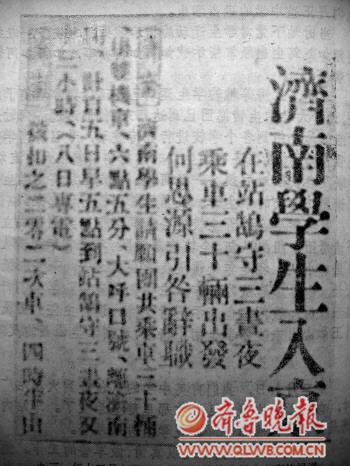 濟南學生入京
在站鵠守三晝夜
乘車三十輛出發
何思源引咎辭職
濟南學生請願團共乘車三十輛
掛雙機車、六點五分、大呼口號、離濟南
計自五日早五點到站鵠守三晝夜又
一小時、（八日專電）
被扣之二零二次車、四時半由
齊魯晚報
WWW.QLWB.COM.CN